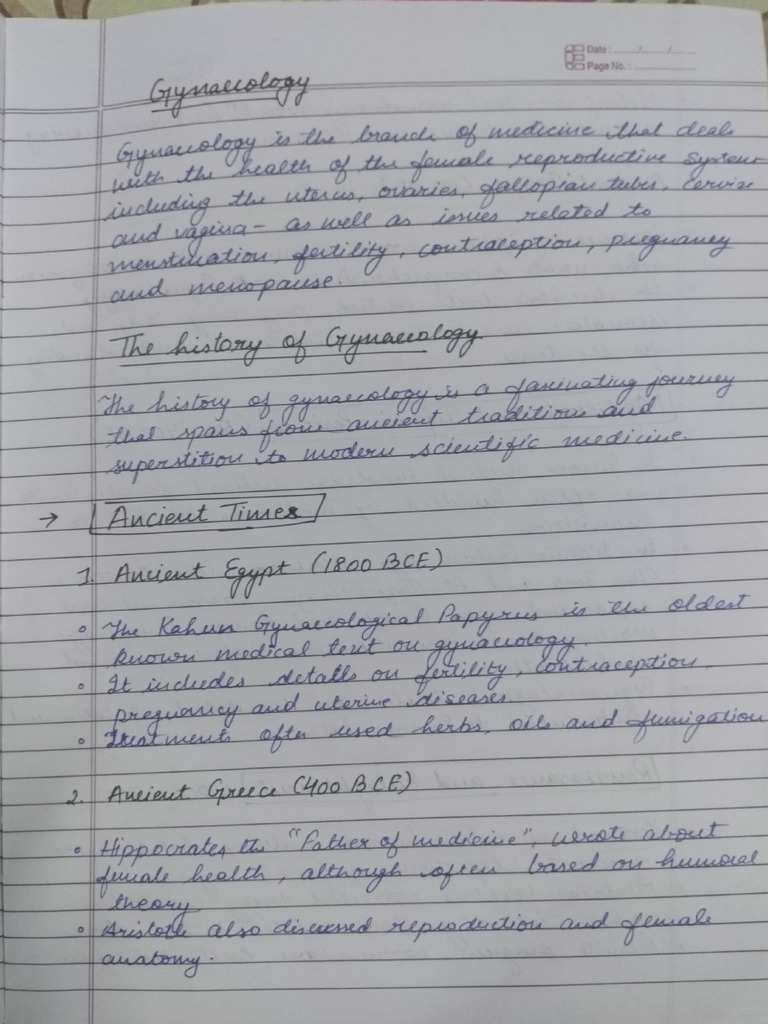 Date : ___/___/___
Page No. :
Gynaecology
Gynaecology is the branch of medicine that deals
with the health of the female reproductive system
including the uterus, ovaries, fallopian tubes, cervix
and vagina - as well as issues related to
menstruation, fertility, contraception, pregnancy
and menopause.
The history of Gynaecology
The history of gynaecology is a fascinating journey
that spans from ancient traditions and
superstition to modern scientific medicine.
→ Ancient Times
1. Ancient Egypt (1800 BCE)
• The Kahun Gynaecological Papyrus is the oldest
known medical text on gynaecology.
• It includes details on fertility, contraception
pregnancy and uterine diseases.
• Treatments often used herbs, oils and fumigation
2. Ancient Greece (400 BCE)
• Hippocrates, the "Father of medicine", wrote about
female health, although often based on humoral
theory
• Aristotle also discussed reproduction and female
anatomy.